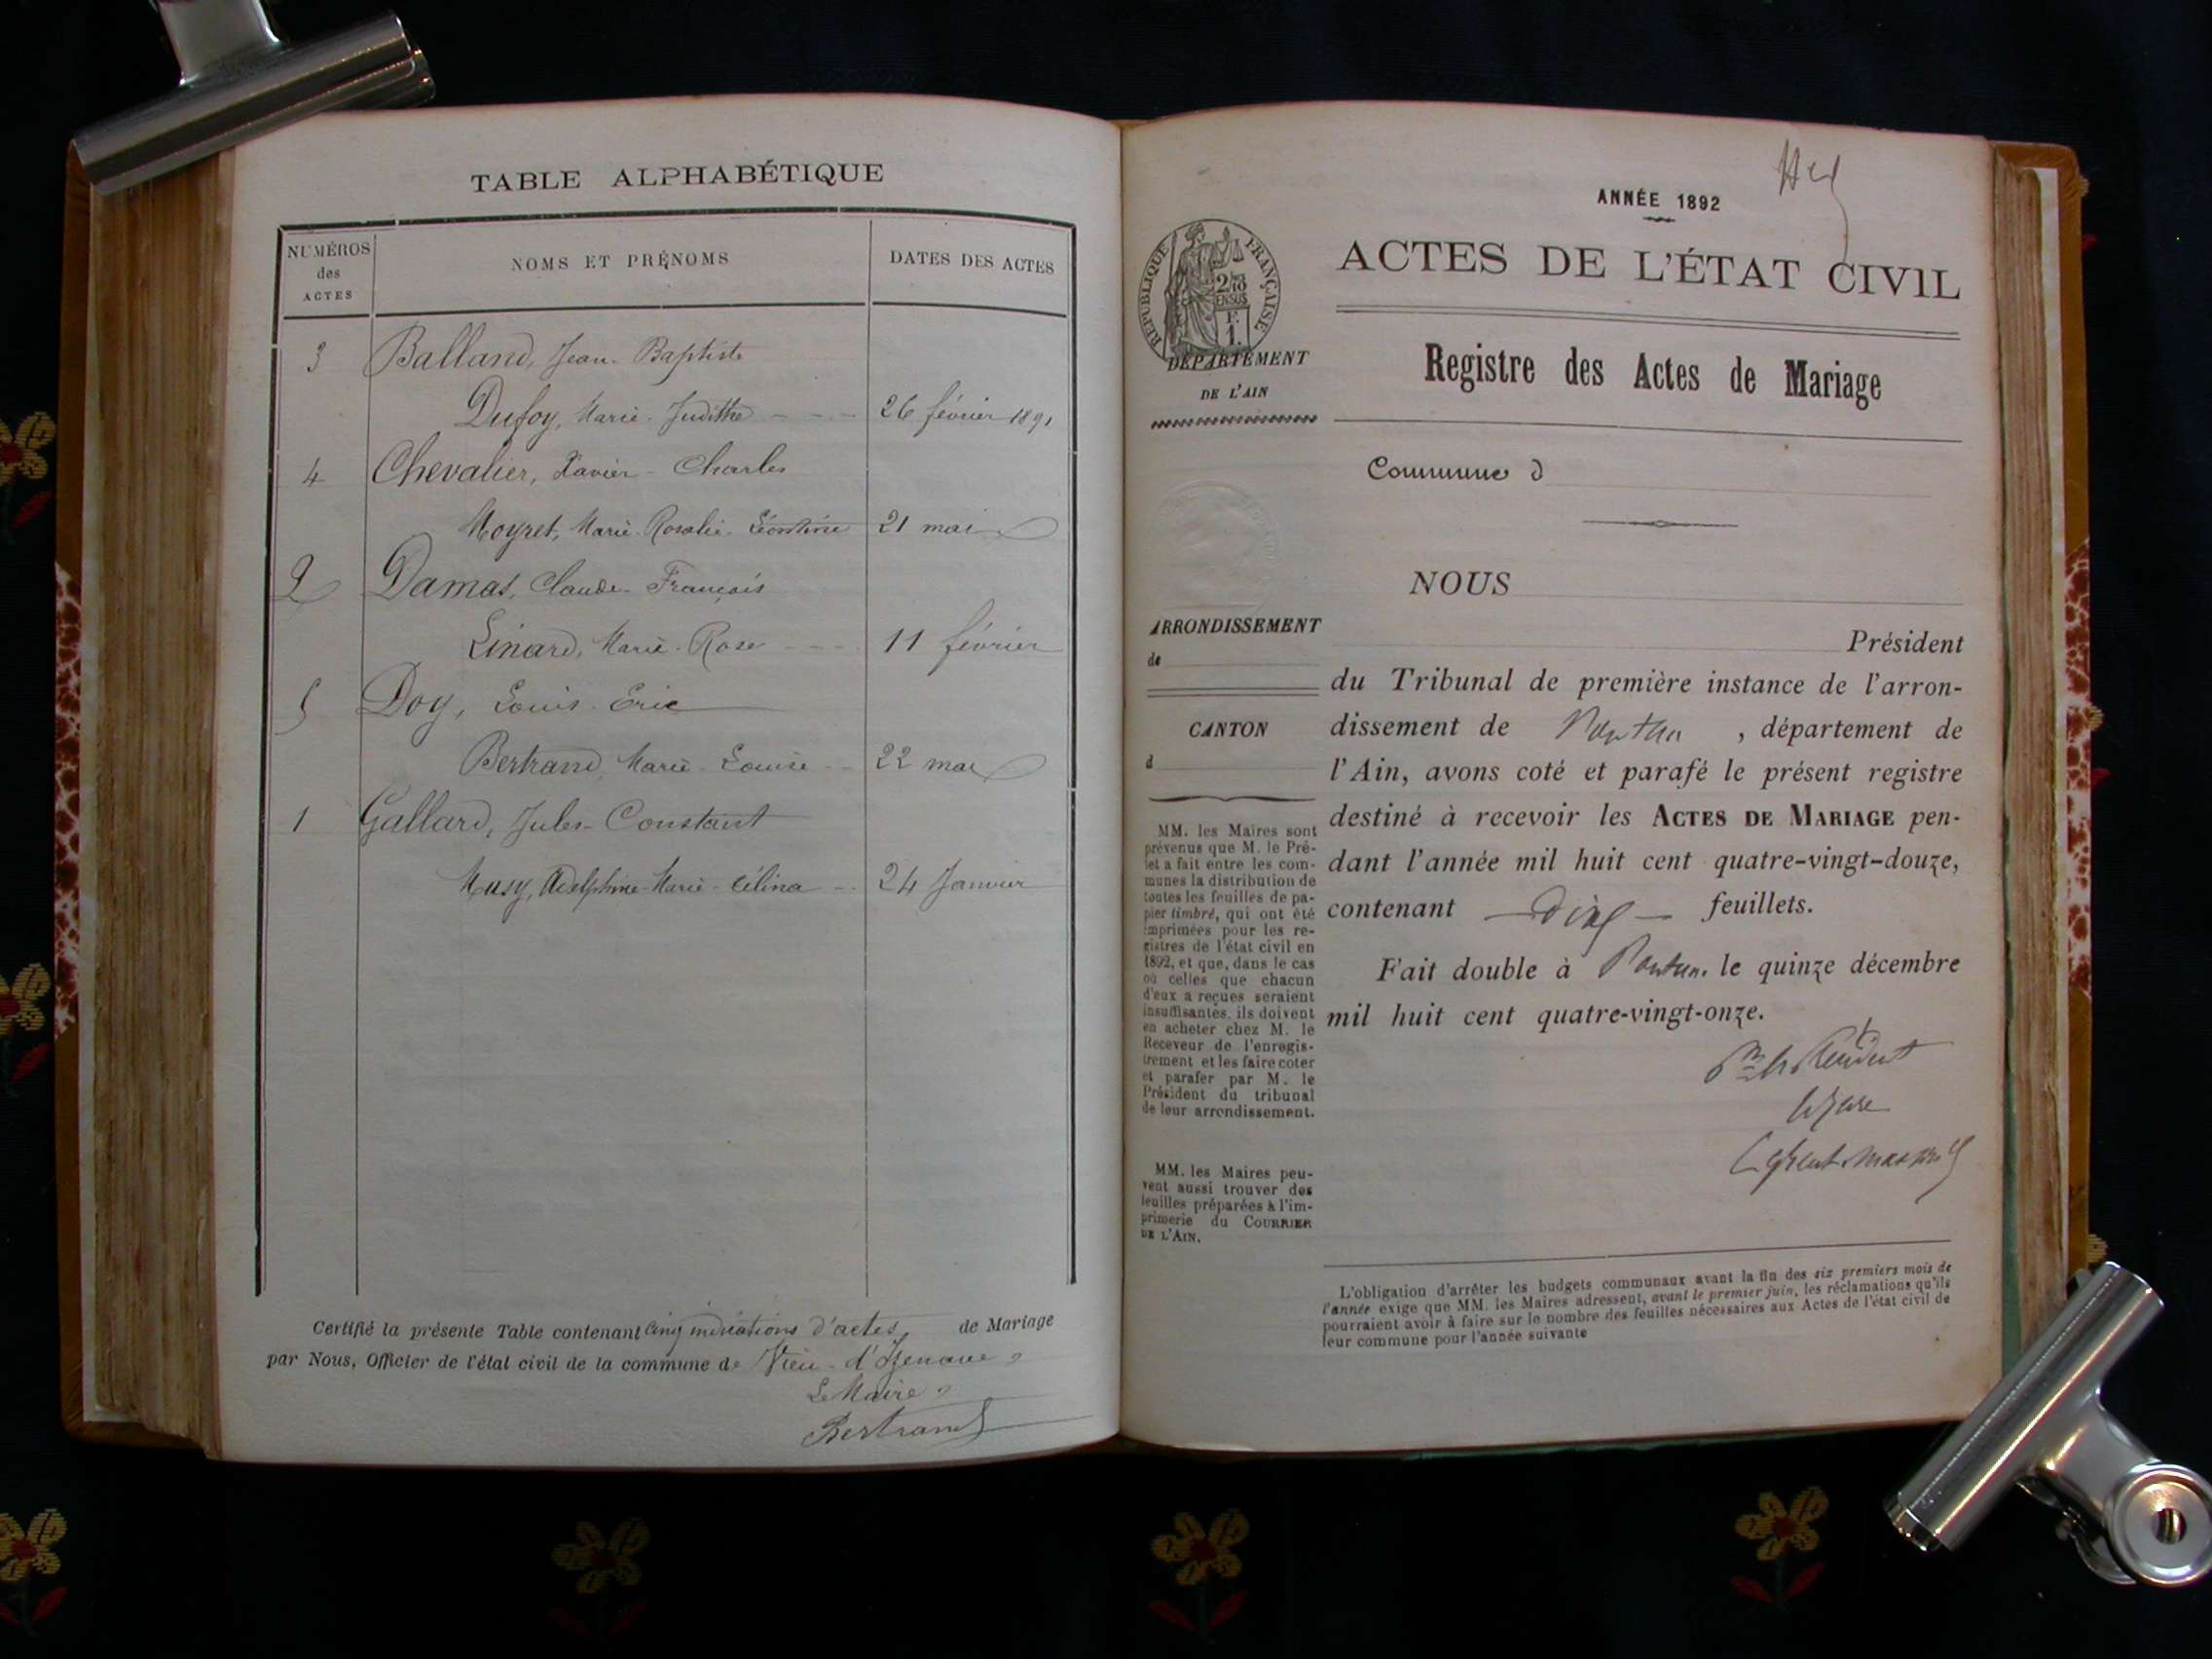 TABLE ALPHABÉTIQUE
NUMÉROS des ACTES
NOMS ET PRÉNOMS
DATES DES ACTES
3 Balland, Jean-Baptiste
Dufoy, Marie-Judithe 26 février 1891
4 Chevalier, Xavier-Charles
Moyret, Marie-Rosalie-Léontine 21 mai
2 Damas, Claude-François
Linard, Marie-Rose 11 février
5 Doy, Louis-Eric
Bertrand, Marie-Louise 22 mai
1 Gallard, Jules-Constant
Musy, Adelphine-Marie-Célina 24 Janvier
Certifié la présente Table contenant cinq indications d'actes de Mariage
par Nous, Officier de l'état civil de la commune de Vieu-d'Izenave
Le Maire
Bertrand
ANNÉE 1892
ACTES DE L'ÉTAT CIVIL
RÉPUBLIQUE FRANÇAISE
2/10 EN SUS
F. 1.
DÉPARTEMENT
DE L'AIN
Registre des Actes de Mariage
Commune d
NOUS
ARRONDISSEMENT
de
CANTON
d
MM. les Maires sont
prévenus que M. le Pré-
fet a fait entre les com-
munes la distribution de
toutes les feuilles de pa-
pier timbré, qui ont été
imprimées pour les re-
gistres de l'état civil en
1892, et que, dans le cas
où celles que chacun
d'eux a reçues seraient
insuffisantes, ils doivent
en acheter chez M. le
Receveur de l'enregis-
trement et les faire coter
et parafer par M. le
Président du tribunal
de leur arrondissement.
MM. les Maires peu-
vent aussi trouver des
feuilles préparées à l'im-
primerie du COURRIER
DE L'AIN.
Président
du Tribunal de première instance de l'arron-
dissement de Nantua, département de
l'Ain, avons coté et parafé le présent registre
destiné à recevoir les ACTES DE MARIAGE pen-
dant l'année mil huit cent quatre-vingt-douze,
contenant dix feuillets.
Fait double à Nantua, le quinze décembre
mil huit cent quatre-vingt-onze.
Pr le Président
L'obligation d'arrêter les budgets communaux avant la fin des six premiers mois de
l'année exige que MM. les Maires adressent, avant le premier juin, les réclamations qu'ils
pourraient avoir à faire sur le nombre des feuilles nécessaires aux Actes de l'état civil de
leur commune pour l'année suivante